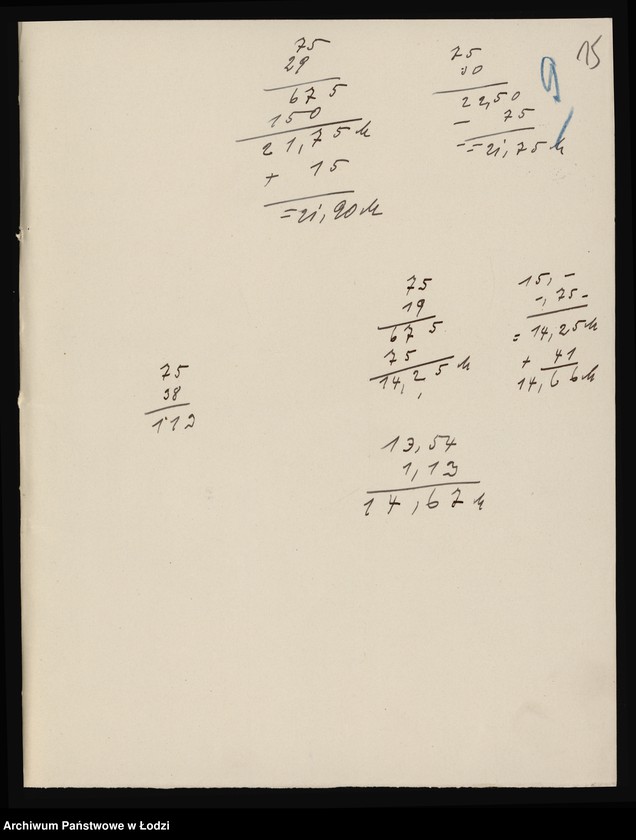 75
29
675
150
21,75 M
+ 15
= 21,90 M
75
30
22,50
- 75
= 21,75 M
9
15
75
19
675
75
14,25 M
15,-
-,75-
= 14,25 M
+ 41
14,66 M
75
38
113
13,54
1,13
14,67 M
Archiwum Państwowe w Łodzi